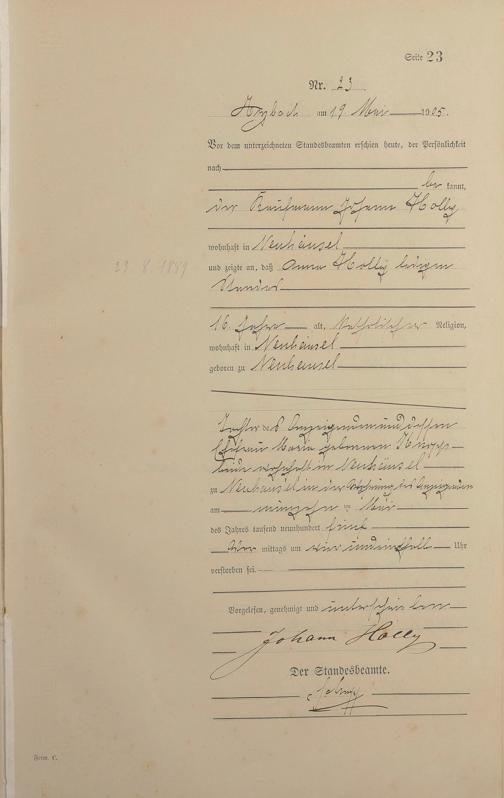 Seite 23
Nr. 23
Arzbach am 19 Mai 1905.
Vor dem unterzeichneten Standesbeamten erschien heute, der Persönlichkeit
nach
be kannt,
der Kaufmann Johann Holly
wohnhaft in Neuhäusel
und zeigte an, daß Anna Holly ledigen
Standes
23.8.1889
16 Jahre alt, katholischer Religion,
wohnhaft in Neuhäusel
geboren zu Neuhäusel
Tochter des Anzeigenden und dessen
Ehefrau Maria geborenen
beide wohnhaft in Neuhäusel
zu Neuhäusel in der Wohnung des Anzeigenden
am neunzehn ten Mai
des Jahres tausend neunhundert fünf
Vor mittags um vier und einhalb Uhr
verstorben sei.
Vorgelesen, genehmigt und unterschrieben
Johann Holly
Der Standesbeamte.
Form. C.